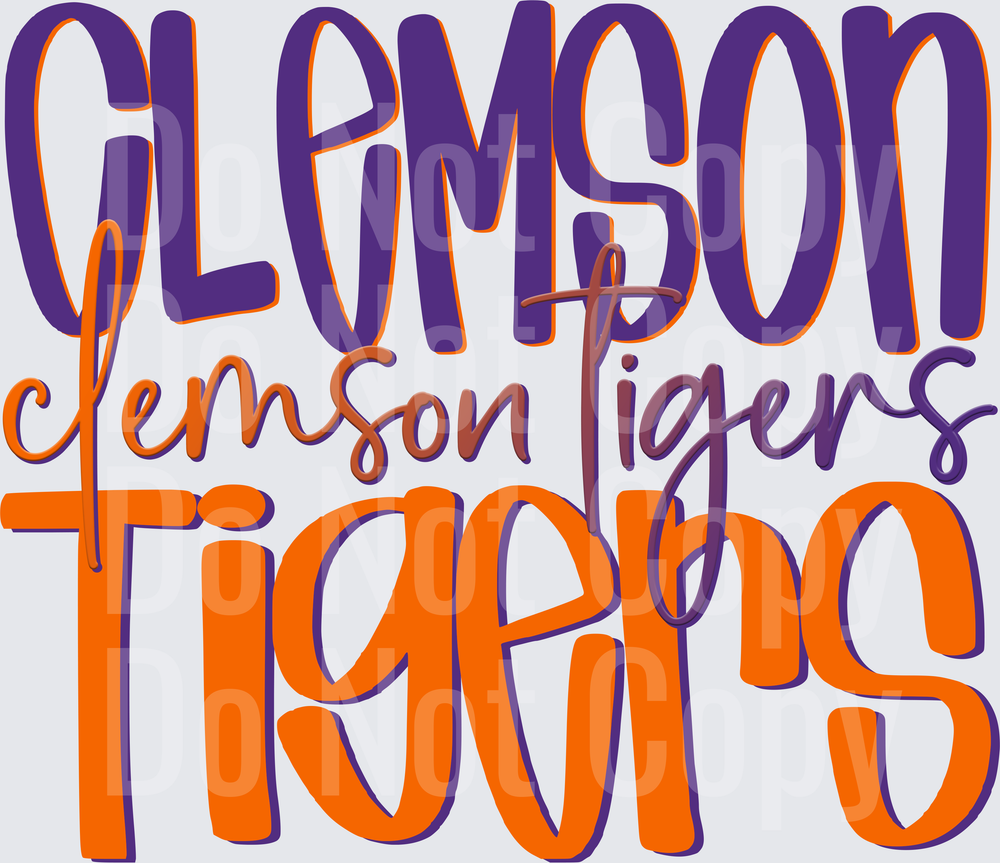 CLeMSON
Do Not Copy
Do Not Copy
clemson tigers
Do Not Copy
Tigers
Do Not Copy